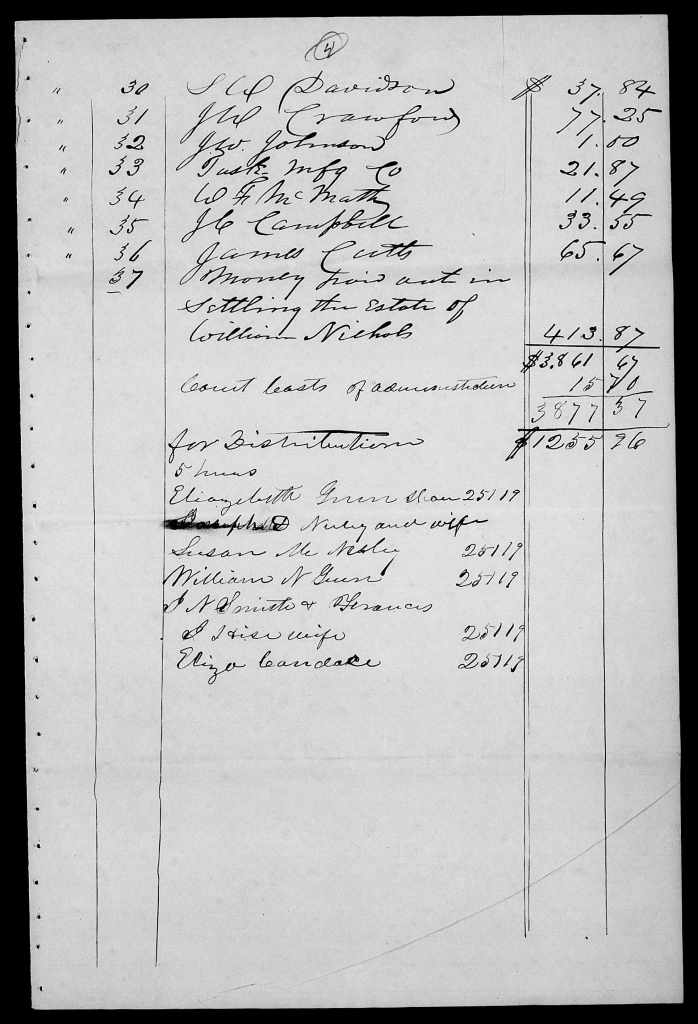 4
" 30 S W Davidson $ 37. 84
" 31 J W Crawford 77. 25
" 32 J W. Johnson 1. 00
" 33 Task Mfg Co 21. 87
" 34 W F McMath 11. 49
" 35 J C Campbell 33. 55
" 36 James Cutts 65. 67
37 Money paid out in
Settling the Estate of
William Nichols 413. 87
$3,861 67
Court Costs of administration 15 70
3877 37
for Distribution $1255 96
5 heirs
Elizabeth Gunn 25119
Nisley and wife
Susan M Nisley 25119
William N Gunn 25119
J N Smith & Frances
S his wife 25119
Eliza Candace 25119